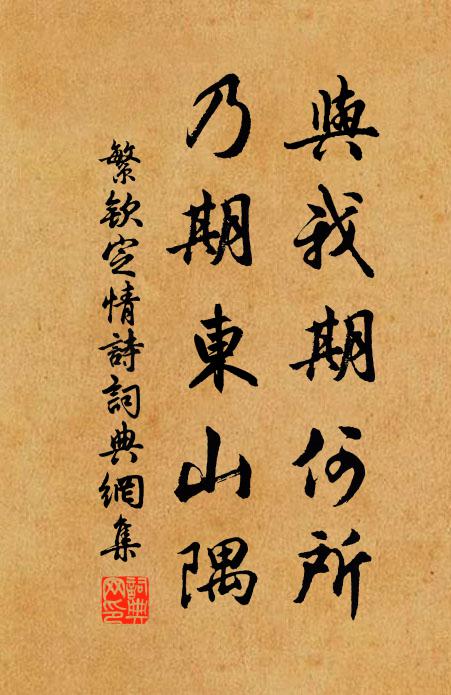 與我期何所
乃期東山隅
繁欽定情詩詞典網集
詞典
网印